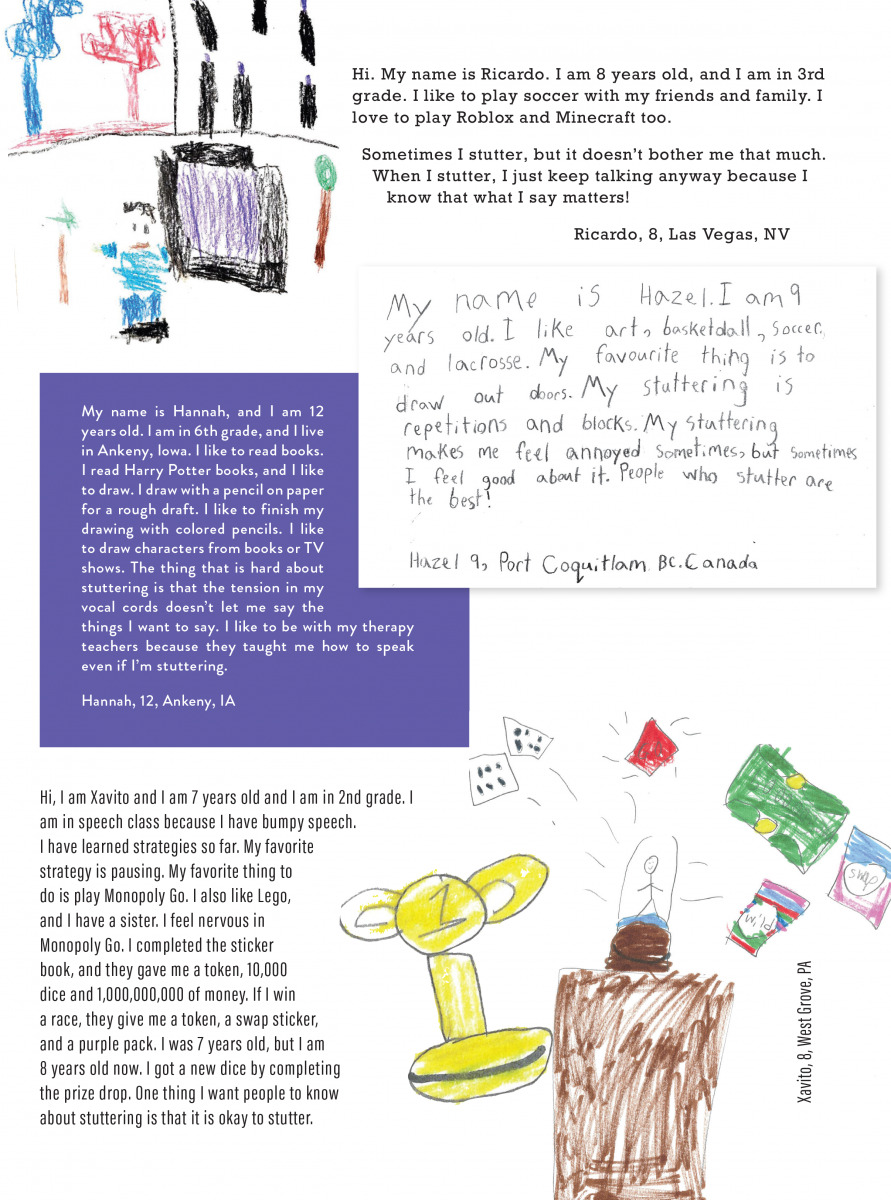 Hi. My name is Ricardo. I am 8 years old, and I am in 3rd
grade. I like to play soccer with my friends and family. I
love to play Roblox and Minecraft too.
Sometimes I stutter, but it doesn't bother me that much.
When I stutter, I just keep talking anyway because I
know that what I say matters!
Ricardo, 8, Las Vegas, NV
My name is Hazel. I am 9
years old. I like art, basketdall, soccer,
and lacrosse. My favourite thing is to
draw out doors. My stuttering is
repetitions and blocks. My stuttering
makes me feel annoyed sometimes, but sometimes
I feel good about it. People who stutter are
the best!
Hazel 9, Port Coquitlam BC. Canada
My name is Hannah, and I am 12
years old. I am in 6th grade, and I live
in Ankeny, Iowa. I like to read books.
I read Harry Potter books, and I like
to draw. I draw with a pencil on paper
for a rough draft. I like to finish my
drawing with colored pencils. I like
to draw characters from books or TV
shows. The thing that is hard about
stuttering is that the tension in my
vocal cords doesn't let me say the
things I want to say. I like to be with my therapy
teachers because they taught me how to speak
even if I'm stuttering.
Hannah, 12, Ankeny, IA
Hi, I am Xavito and I am 7 years old and I am in 2nd grade. I
am in speech class because I have bumpy speech.
I have learned strategies so far. My favorite
strategy is pausing. My favorite thing to
do is play Monopoly Go. I also like Lego,
and I have a sister. I feel nervous in
Monopoly Go. I completed the sticker
book, and they gave me a token, 10,000
dice and 1,000,000,000 of money. If I win
a race, they give me a token, a swap sticker,
and a purple pack. I was 7 years old, but I am
8 years old now. I got a new dice by completing
the prize drop. One thing I want people to know
about stuttering is that it is okay to stutter.
1
swap
Xavito, 8, West Grove, PA